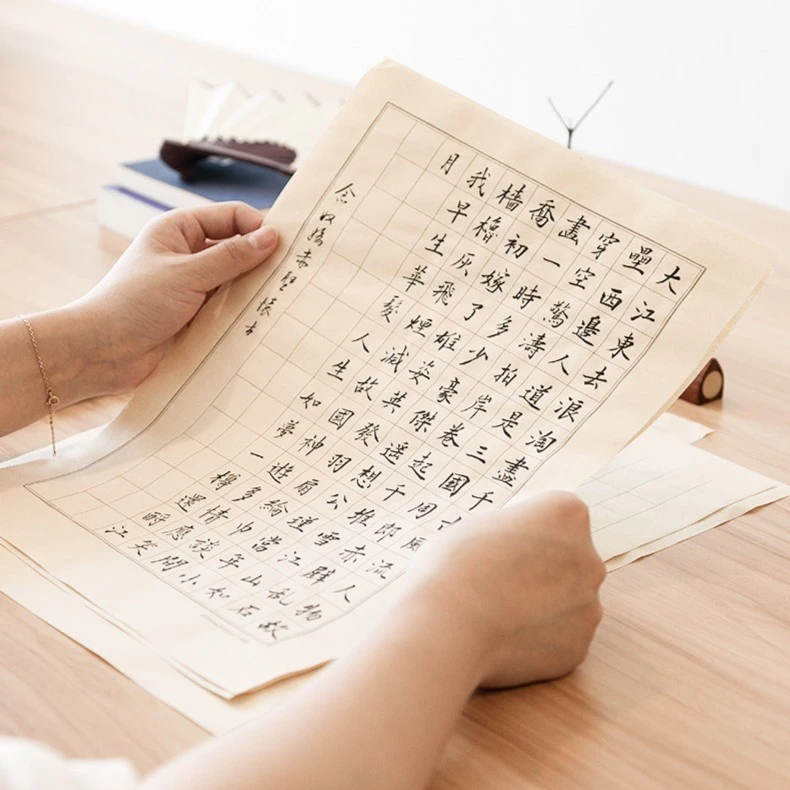 大江東去浪淘盡千古風流人物故
壘西邊人道是三國周郎赤壁亂石
穿空驚濤拍岸卷起千堆雪江山如
畫一時多少豪傑遙想公瑾當年小
喬初嫁了雄姿英發羽扇綸巾談間
檣櫓灰飛煙滅故國神遊多情應笑
我早生華髮人生如夢一樽還酹江
月
念奴嬌赤壁懷古